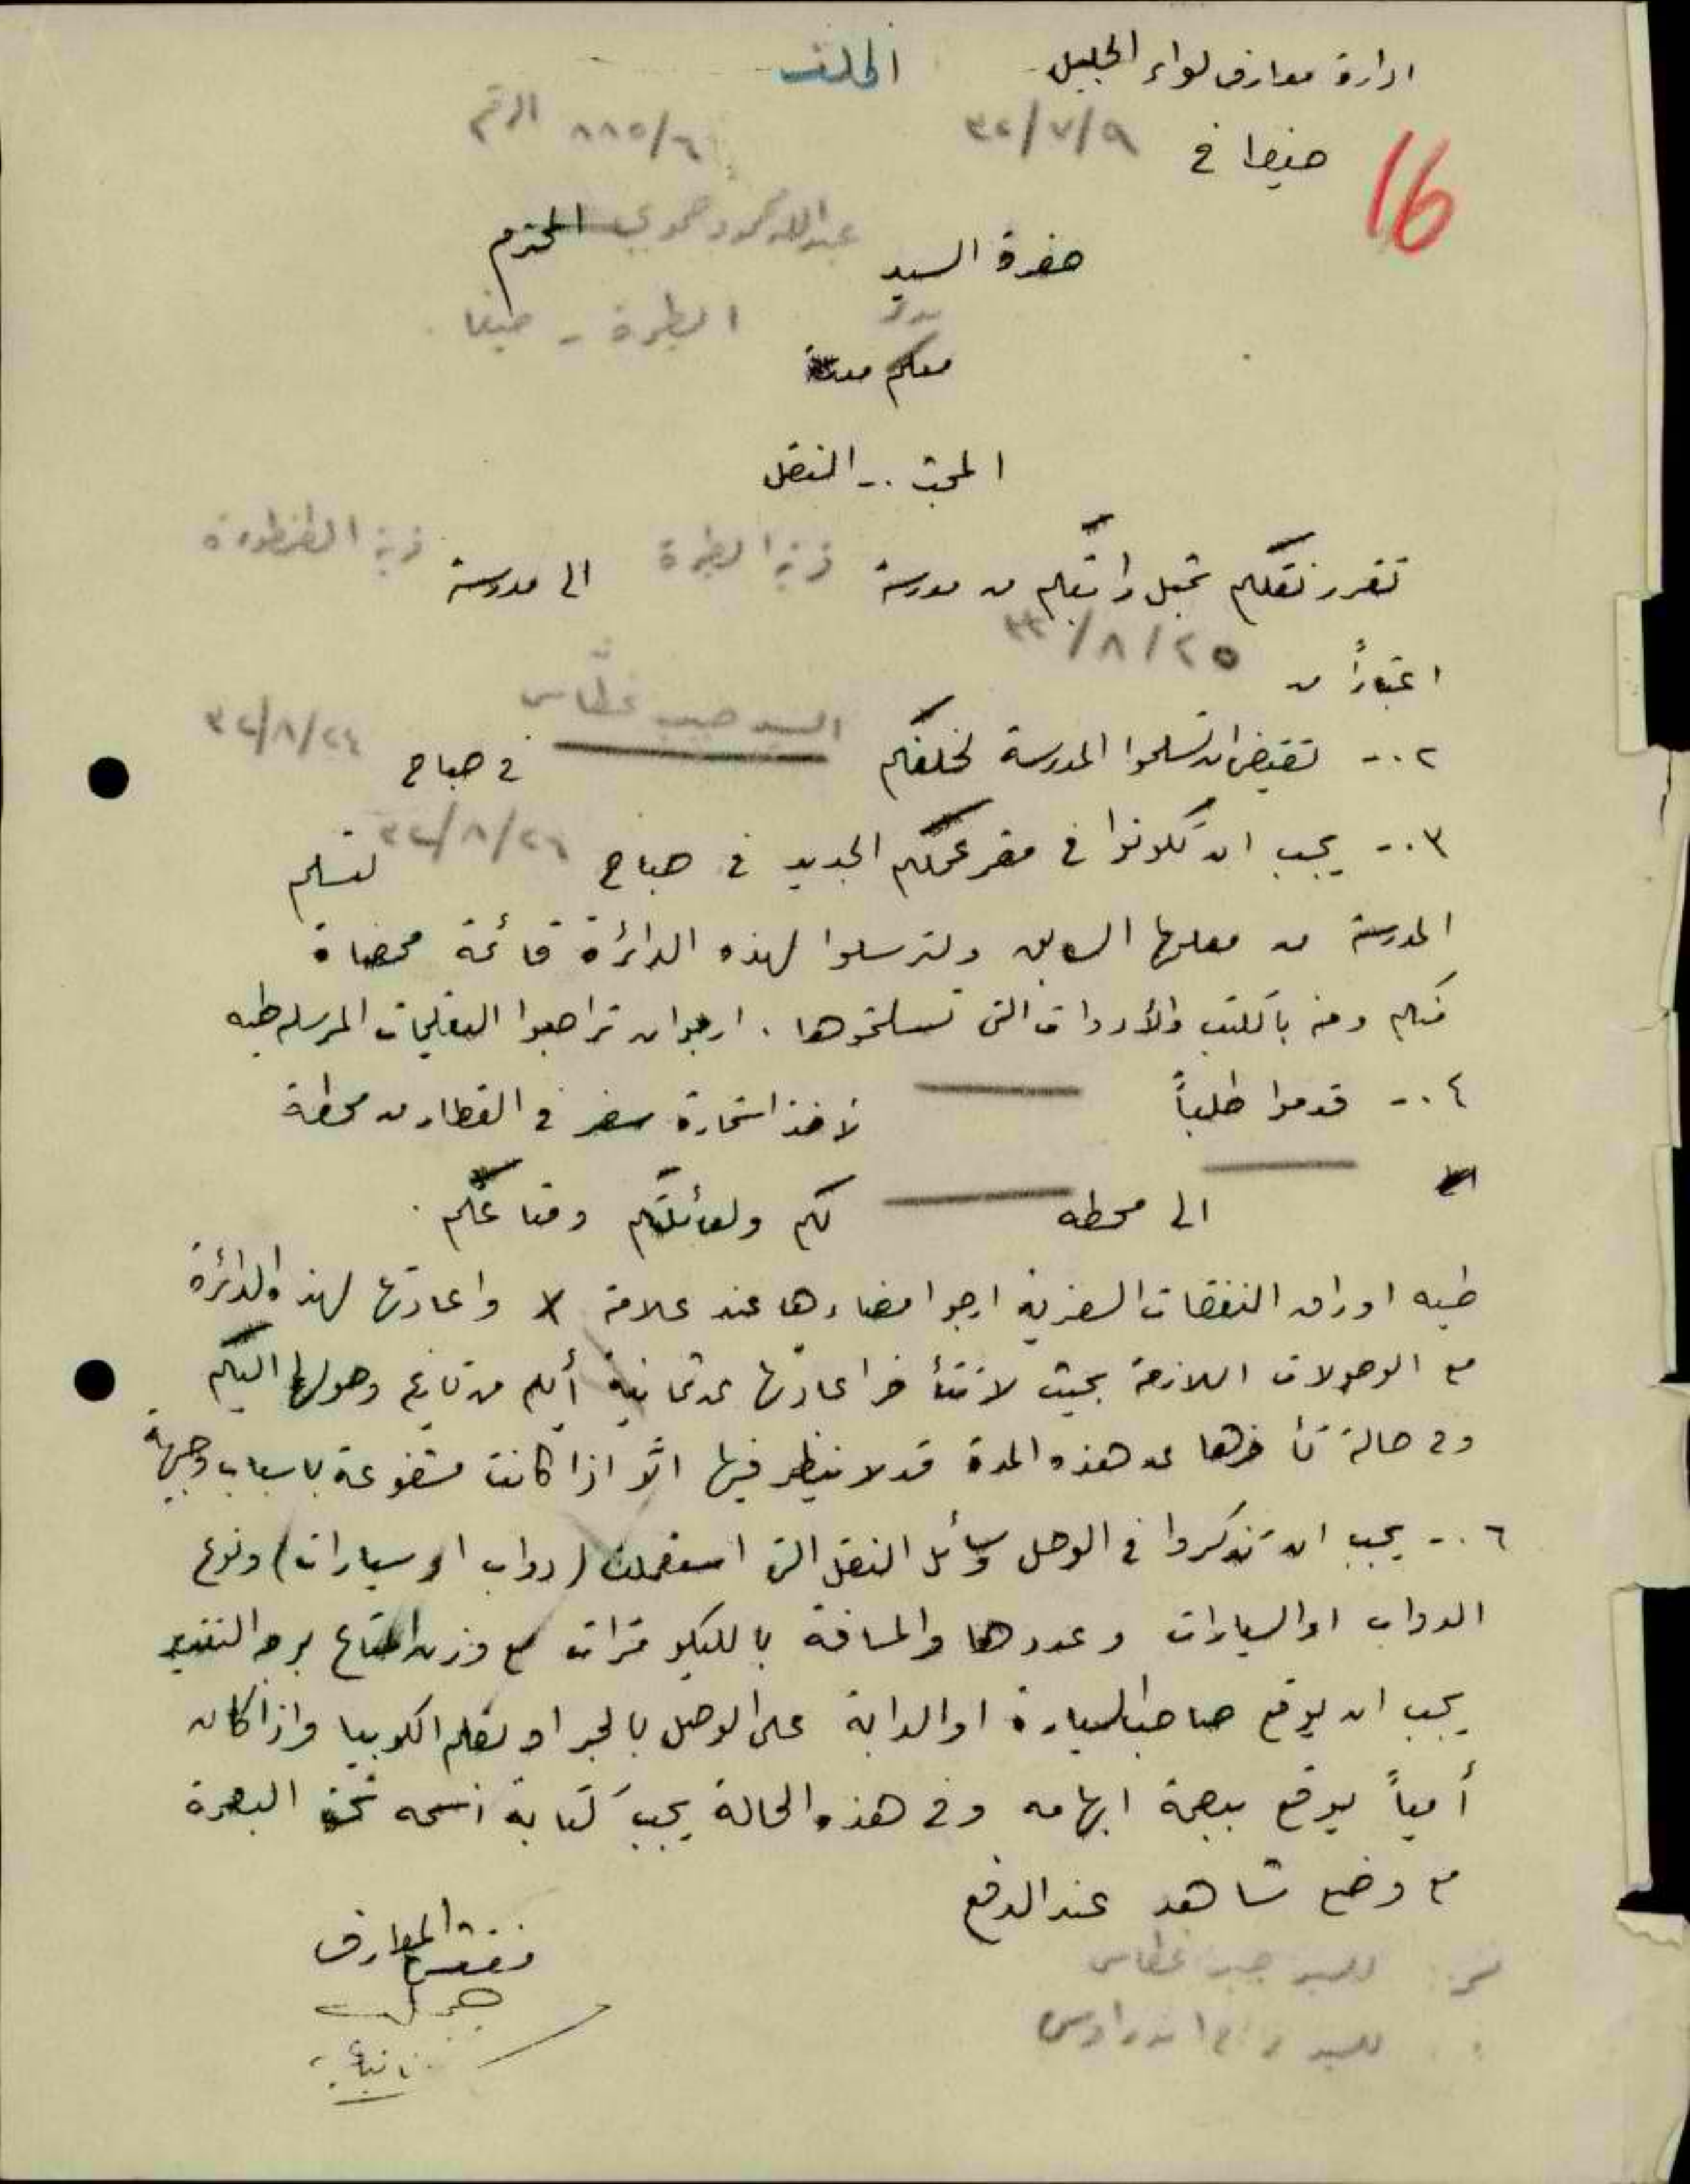 ادارة معارف لواء الجليل الملف
16 حيفا في ٣٢/٧/٩ الرقم ٨٨٥/٦
حضرة السيد عبدالله محمود حموي المحترم
الطيرة - حيفا
معكم
المبحث .- النقل
تقرر نقلكم من مدرسة قرية الطيرة الى مدرسة قرية الطنطورة
اعتباراً من ٣٢/٨/٢٥
٢ .- تقتضى ان تسلموا المدرسة لخلفكم السيد حبيب غطاس في صباح ٣٢/٨/٢٤
٣ .- يجب ان تكونوا في مقر عملكم الجديد في صباح ٣٢/٨/٢٤ لتسلم
المدرسة من معلمها السابق ولترسلوا لهذه الدائرة قائمة ممضاة
منكم ومنه بالكتب والأدوات التي تسلمتموها . ارجوا ان تراجعوا التعليمات المرسله طيه
٤ .- قدموا طلباً لأخذ استمارة سفر في القطار من محطة
الى محطه لكم ولعائلتكم ومتاعكم .
طيه اوراق النفقات السفرية ارجو امضاءها عند علامة X واعادتها لهذه الدائرة
مع الوصولات اللازمة بحيث لا تتأخر اعادتها عن ثمانية أيام من تاريخ وصولها اليكم
وفي حالة تأخرها عن هذه المدة قد لا ينظر فيها الّا اذا كانت مشفوعة باسباب وجيهة
٦ .- يجب ان تذكروا في الوصل وسائل النقل التي استعملت (دواب او سيارات) ونوع
الدواب او السيارات وعددها والمسافة بالكيلو مترات مع وزن المتاع بوجه التقريب
يجب ان يوقع صاحب السيارة او الدابة على الوصل بالحبر او بقلم الكوبيا واذا كان
أمياً يوقع ببصمة ابهامه وفي هذه الحالة يجب كتابة اسمه تحت البصمة
مع وضع شاهد عند الدفع
مفتش المعارف
للسيد حبيب غطاس
للسيد